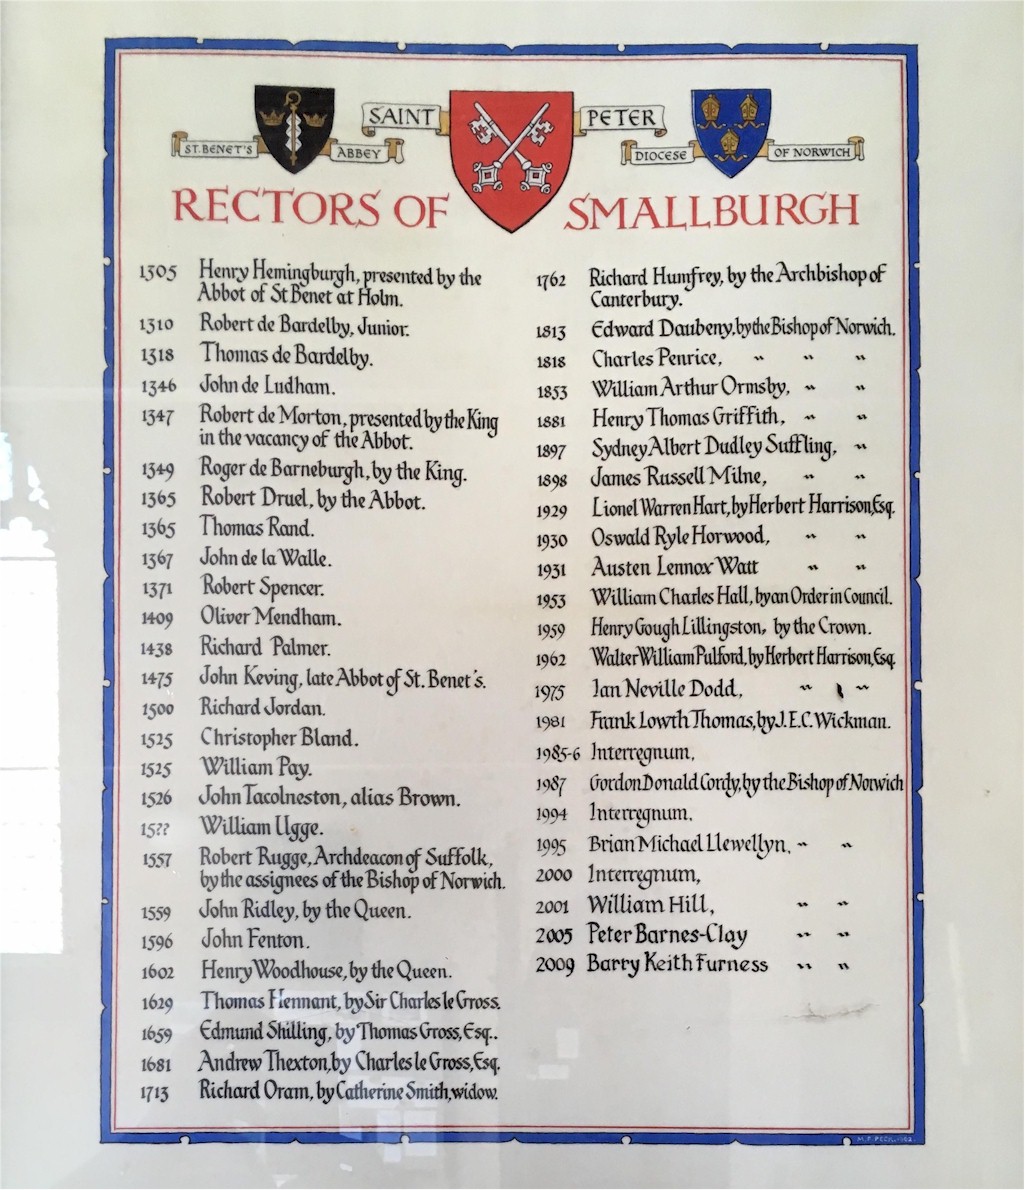 SAINT PETER
ST. BENET'S ABBEY
DIOCESE OF NORWICH
RECTORS OF SMALLBURGH
1305 Henry Hemingburgh, presented by the
Abbot of St Benet at Holm.
1310 Robert de Bardelby, Junior.
1318 Thomas de Bardelby.
1346 John de Ludham.
1347 Robert de Morton, presented by the King
in the vacancy of the Abbot.
1349 Roger de Barneburgh, by the King.
1365 Robert Druel, by the Abbot.
1365 Thomas Rand.
1367 John de la Walle.
1371 Robert Spencer.
1409 Oliver Mendham.
1438 Richard Palmer.
1475 John Keving, late Abbot of St. Benet's.
1500 Richard Jordan.
1525 Christopher Bland.
1525 William Pay.
1526 John Tacolneston, alias Brown.
15?? William Ugge.
1557 Robert Rugge, Archdeacon of Suffolk,
by the assignees of the Bishop of Norwich.
1559 John Ridley, by the Queen.
1596 John Fenton.
1602 Henry Woodhouse, by the Queen.
1629 Thomas Hennant, by Sir Charles le Gross.
1659 Edmund Shilling, by Thomas Gross, Esq..
1681 Andrew Thexton, by Charles le Gross, Esq.
1713 Richard Oram, by Catherine Smith, widow.
1762 Richard Humfrey, by the Archbishop of
Canterbury.
1813 Edward Daubeny, by the Bishop of Norwich.
1818 Charles Penrice, " " "
1853 William Arthur Ormsby, " "
1881 Henry Thomas Griffith, " "
1897 Sydney Albert Dudley Suffling, "
1898 James Russell Milne, " "
1929 Lionel Warren Hart, by Herbert Harrison, Esq.
1930 Oswald Ryle Horwood, " "
1931 Austen Lennox Watt " "
1953 William Charles Hall, by an Order in Council.
1959 Henry Gough Lillingston, by the Crown.
1962 Walter William Pulford, by Herbert Harrison, Esq.
1975 Ian Neville Dodd, " "
1981 Frank Lowth Thomas, by J.E.C. Wickman.
1985-6 Interregnum,
1987 Gordon Donald Cordy, by the Bishop of Norwich
1994 Interregnum,
1995 Brian Michael Llewellyn, " "
2000 Interregnum,
2001 William Hill, " "
2005 Peter Barnes-Clay " "
2009 Barry Keith Furness " "